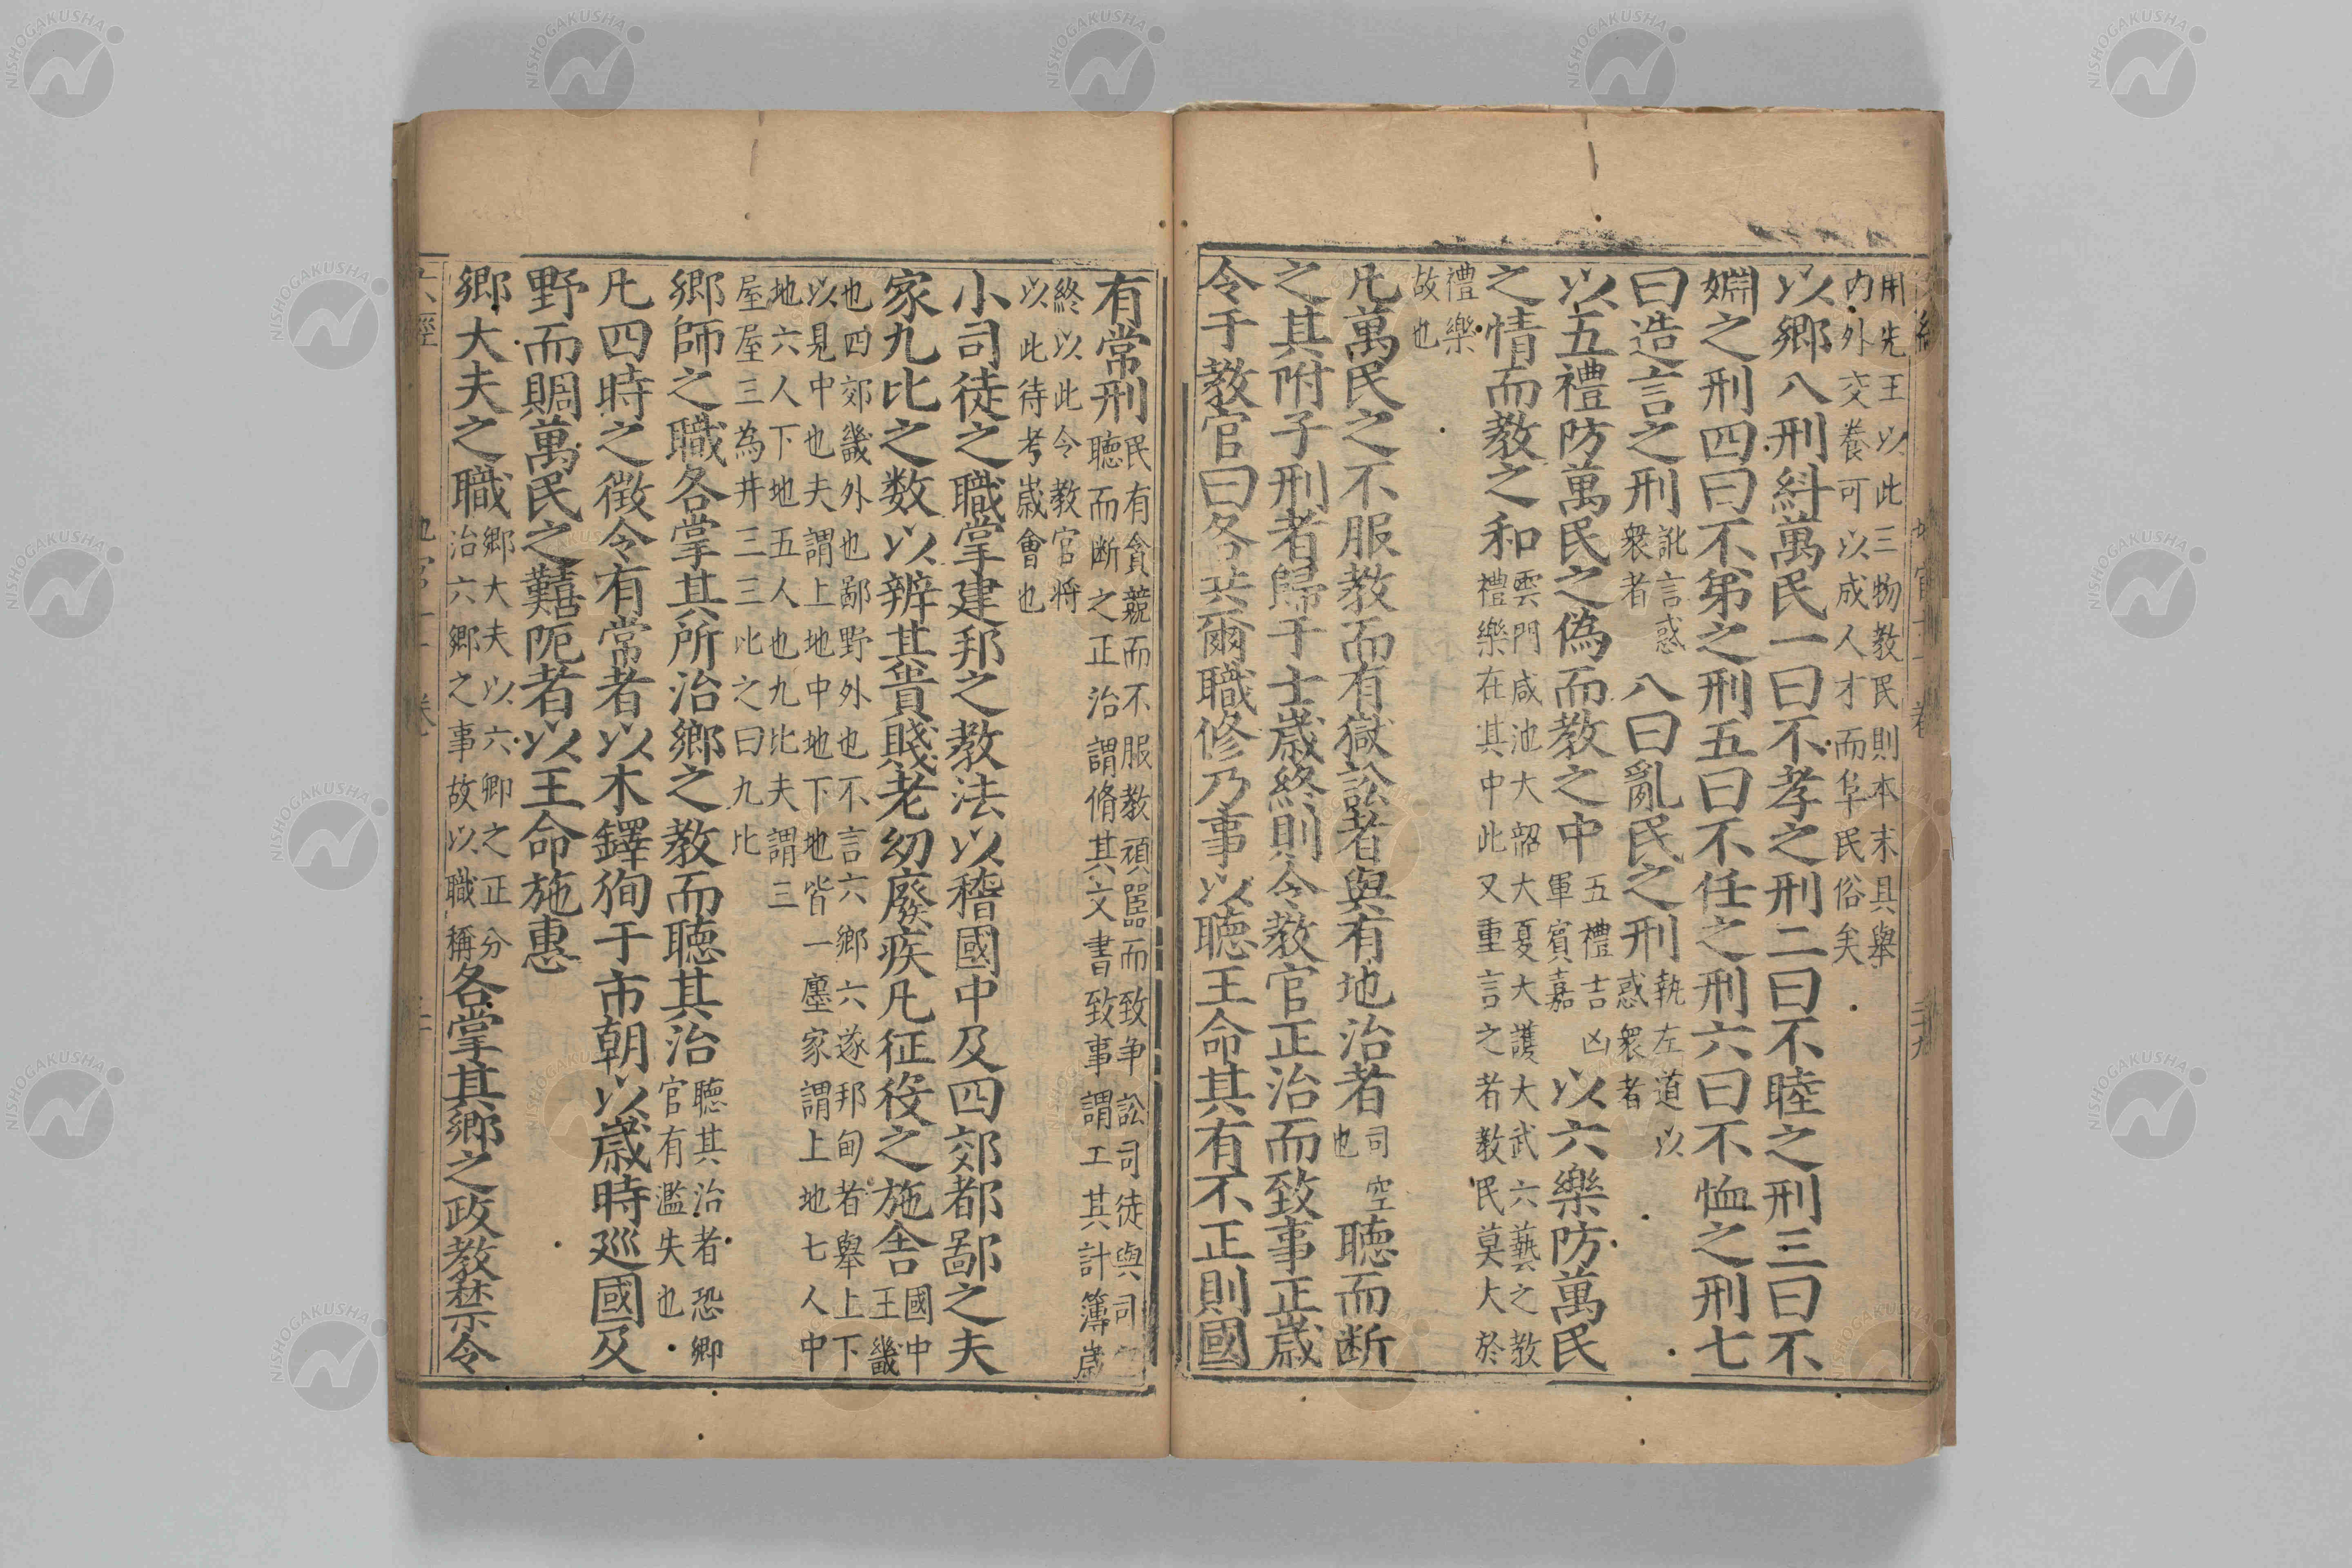 用先王以此三物教民則本末具舉
内外交養可以成人才而阜民俗矣
以鄉八刑糾萬民一曰不孝之刑二曰不睦之刑三曰不
婣之刑四曰不弟之刑五曰不任之刑六曰不恤之刑七
曰造言之刑訛言惑衆者八曰亂民之刑執左道以惑衆者
以五禮防萬民之偽而教之中五禮吉凶軍賓嘉以六樂防萬民
之情而教之和雲門咸池大韶大夏大濩大武六藝之教禮樂在其中此又重言之者教民莫大於
禮樂故也
凡萬民之不服教而有獄訟者與有地治者司空也聽而断
之其附于刑者歸于士歲終則令教官正治而致事正歲
令于教官曰各共爾職修乃事以聽王命其有不正則國
有常刑民有貪競而不服教頑嚚而致争訟司徒與司聽而断之正治謂脩其文書致事謂工其計簿歲
終以此令教官将以此待考嵗會也
小司徒之職掌建邦之教法以稽國中及四郊都鄙之夫
家九比之数以辨其貴賤老幼廢疾凡征役之施舎國中王畿
也四郊畿外也鄙野外也不言六鄉六遂邦甸者舉上下以見中也夫謂上地中地下地皆一廛家謂上地七人中
地六人下地五人也九比夫謂三屋屋三為井三三比之曰九比
鄉師之職各掌其所治鄉之教而聽其治聽其治者恐鄉官有濫失也
凡四時之徵令有常者以木鐸徇于市朝以嵗時廵國及
野而賙萬民之囏阨者以王命施惠
鄉大夫之職鄉大夫以六卿之正分治六鄉之事故以職稱各掌其鄉之政教禁令
NISHOGAKUSHA